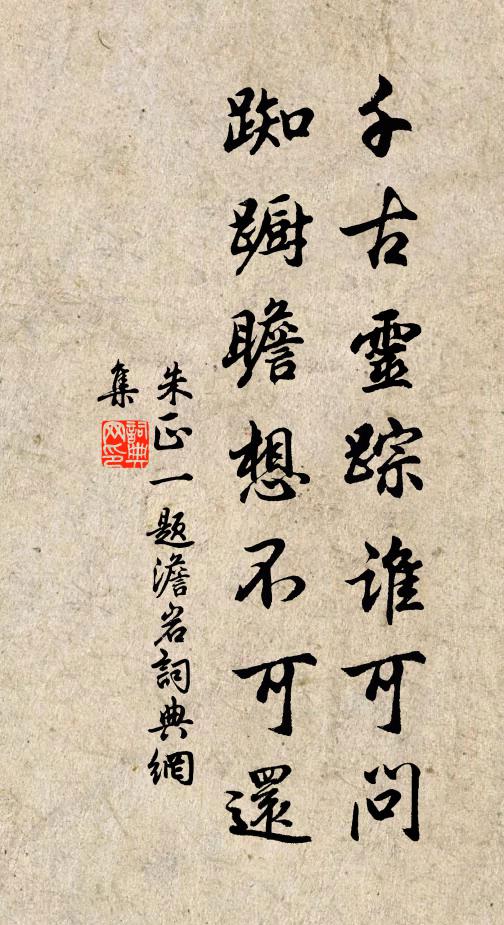 千古靈踪谁可問
踟蹰瞻想不可還
朱正一题澹岩詞典網
集
詞典
网印